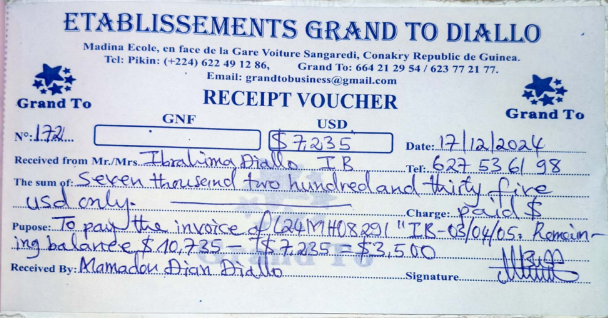 ETABLISSEMENTS GRAND TO DIALLO
Madina Ecole, en face de la Gare Voiture Sangaredi, Conakry Republic de Guinea.
Tel: Pikin: (+224) 622 49 12 86, Grand To: 664 21 29 54 / 623 77 21 77.
Email: grandtobusiness@gmail.com
Grand To
RECEIPT VOUCHER
Grand To
GNF USD
N°: 172 $ 7,235 Date: 17/12/2024
Received from Mr./Mrs. Ibrahima Diallo IB Tel: 627 53 61 98
The sum of: Seven thousend two hundred and thirty five
usd only. Charge: paid $
Pupose: To pay the invoice of L24MH08291 "IB-03/04/05. Remain-
ing balance $ 10,735 - $ 7,235 - $ 3,500
Grand To
Received By: Mamadou Dian Diallo Signature